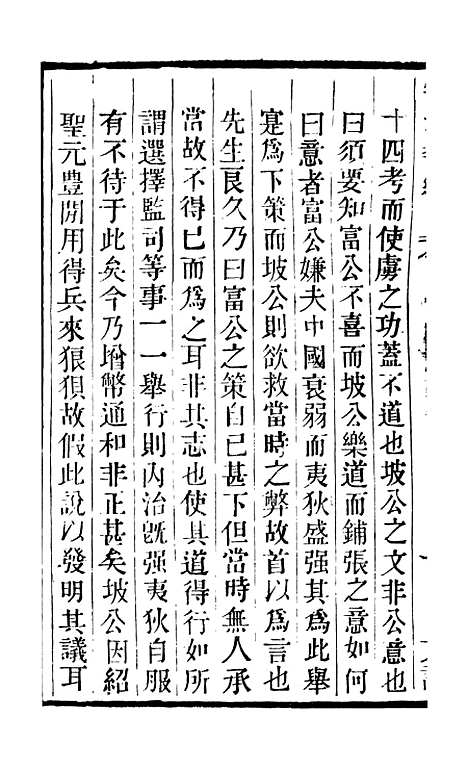 十四考而使虜之功蓋不道也坡公之文非公意也
曰須要知富公不喜而坡公樂道而鋪張之意如何
曰意者富公嫌夫中國衰弱而夷狄盛强其爲此舉
寔爲下策而坡公則欲救當時之弊故首以爲言也
先生良久乃曰富公之策自已甚下但當時無人承
當故不得已而爲之耳非其志也使其道得行如所
謂選擇監司等事一一舉行則內治旣强夷狄自服
有不待于此矣今乃增幣通和非正甚矣坡公因紹
聖元豐開用得兵來狼狽故假此說以發明其議耳